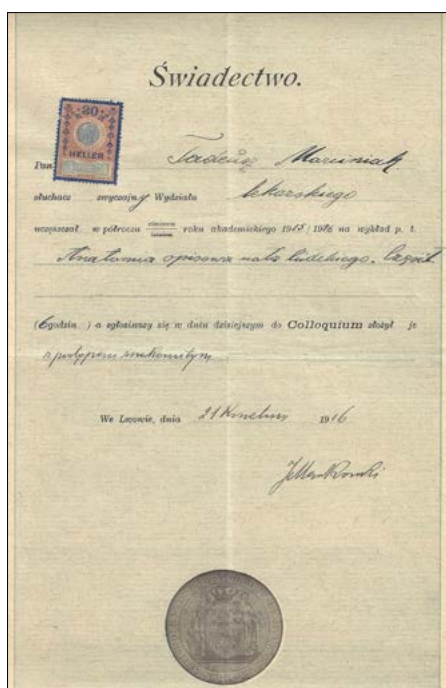 Świadectwo.
20
HELLER
Pan Tadeusz Marciniak
słuchacz zwyczajny Wydziału lekarskiego
uczęszczał w półroczu zimowem letniem roku akademickiego 1915/1916 na wykład p. t.
Anatomia opisowa ludzkiego. Część
(6 godzin.) a zgłosiwszy się w dniu dzisiejszym do Colloquium złożył je
z postępem znakomitym
We Lwowie, dnia 21 Kwietnia 1916.